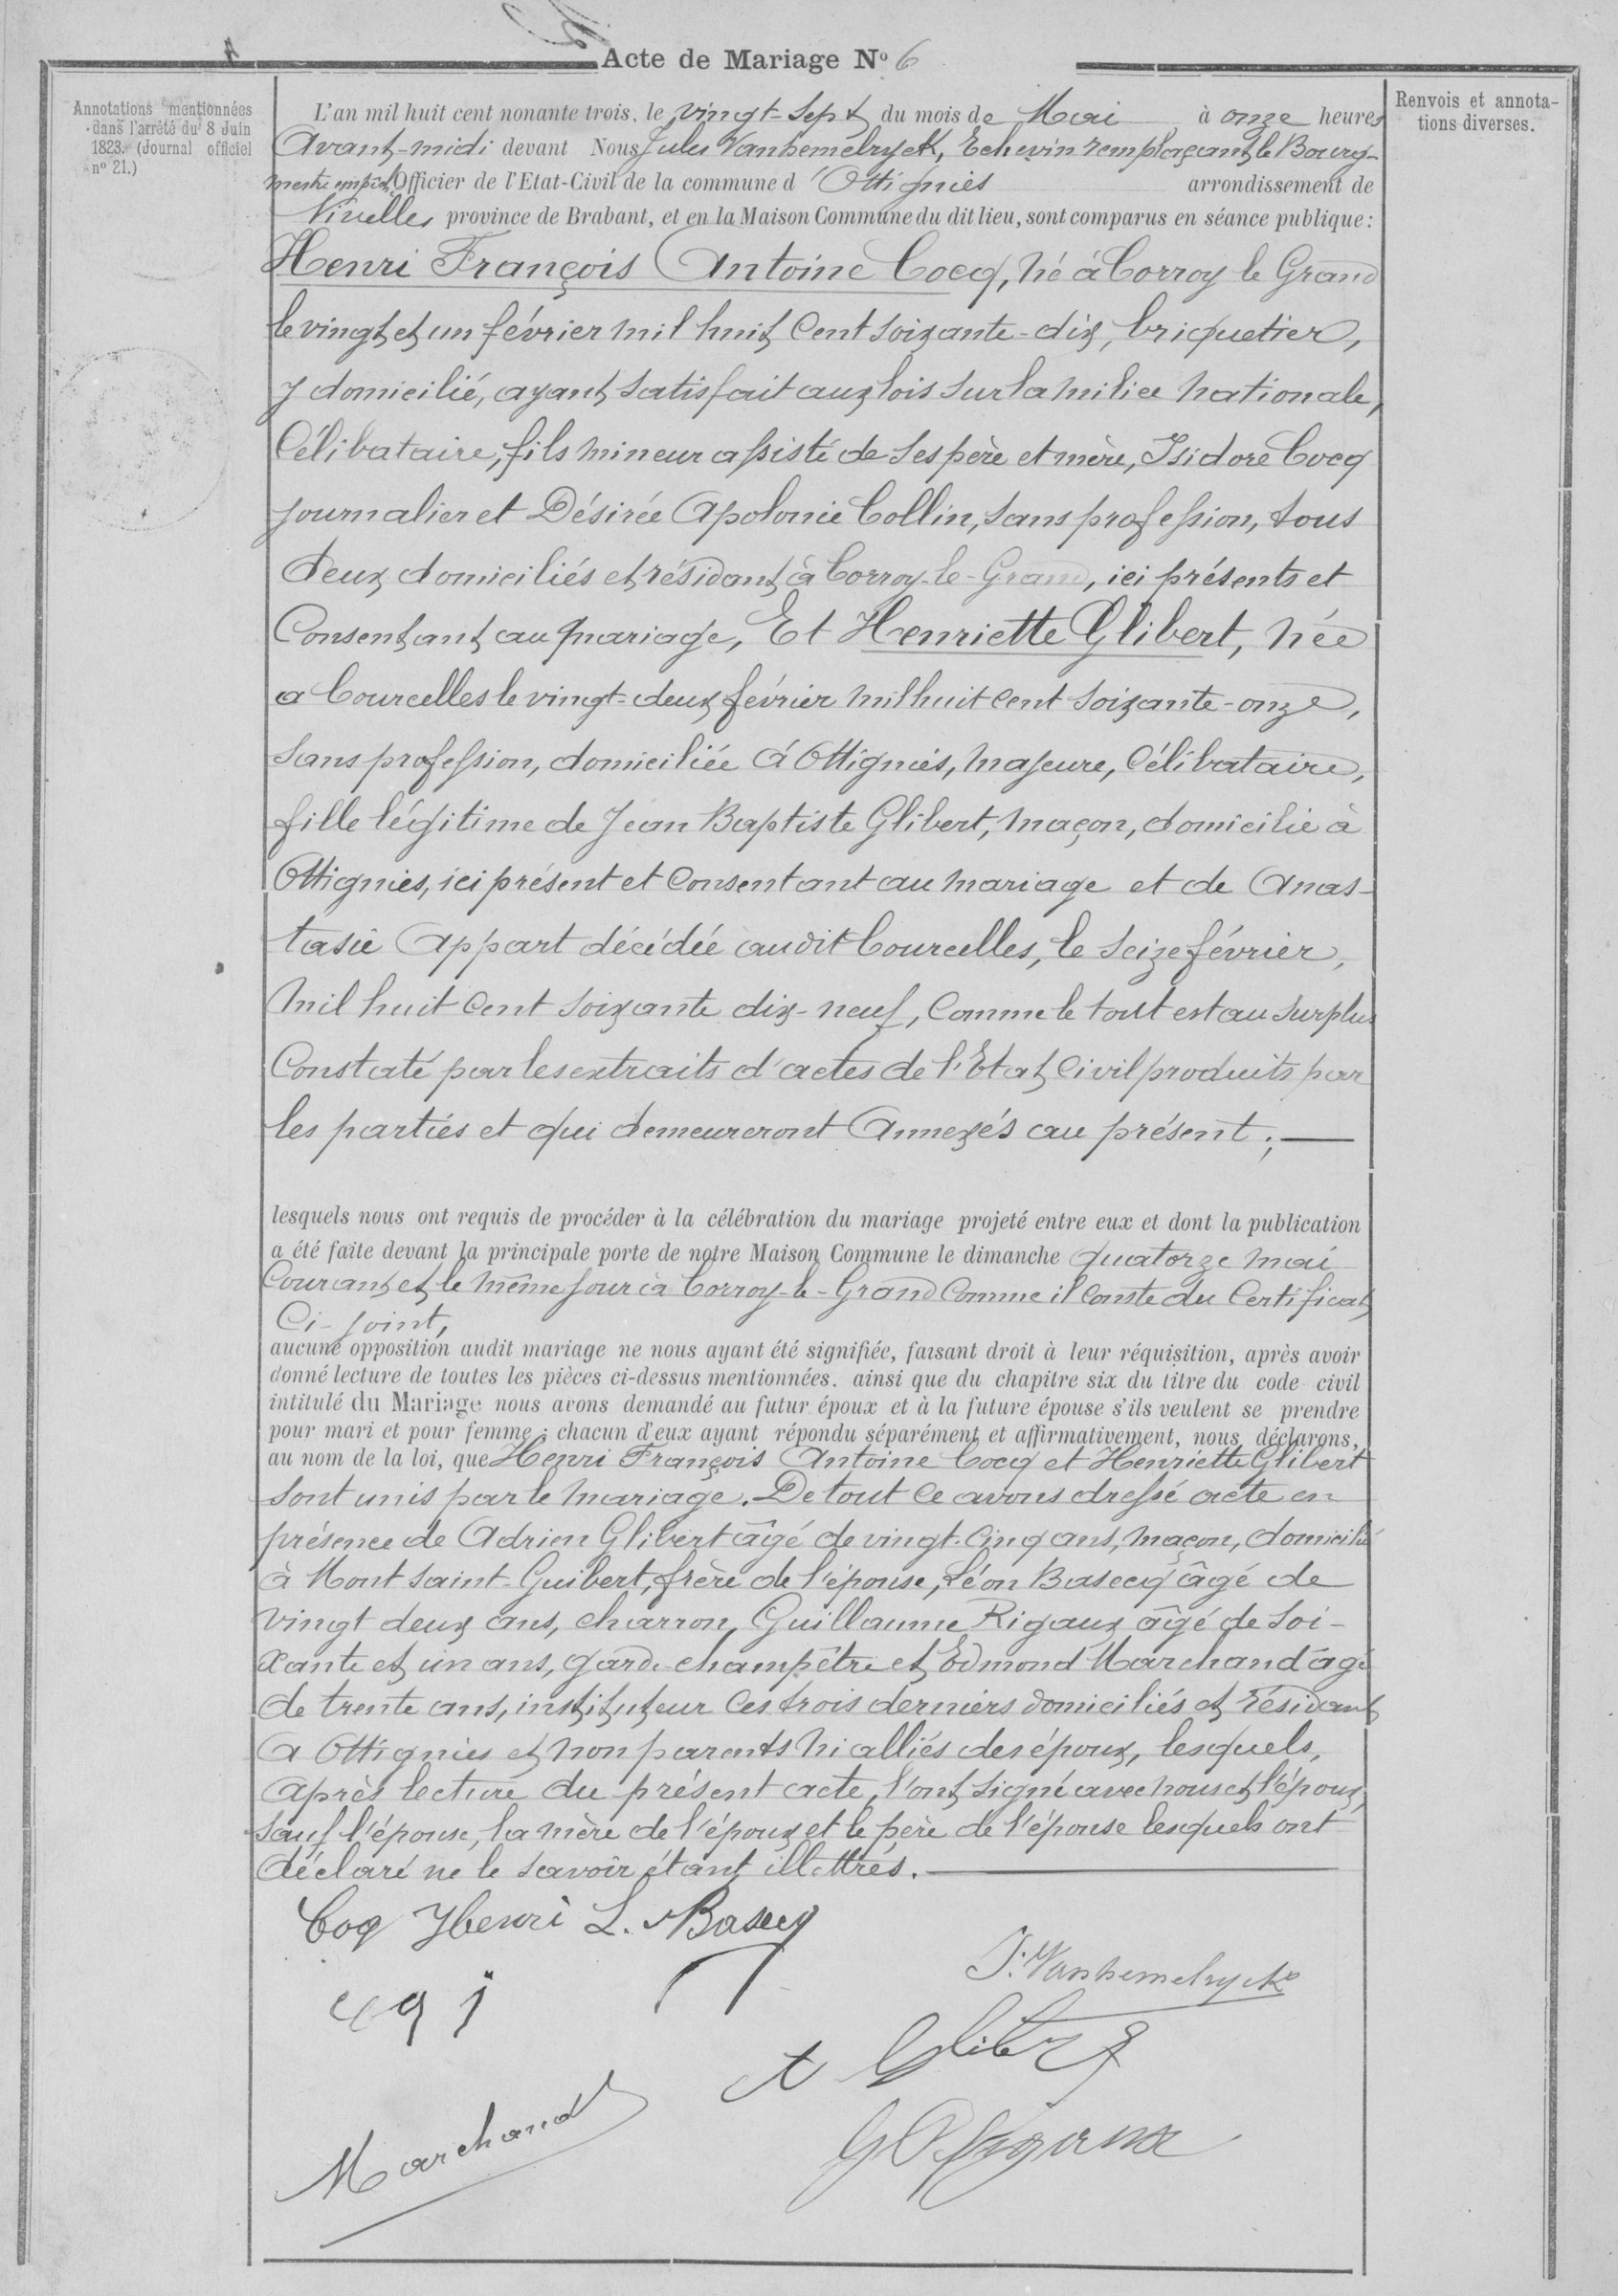 Acte de Mariage Nº 6
Annotations mentionnées
dans l'arrêté du 8 Juin
1823. (Journal officiel
nº 21.)
Renvois et annota-
tions diverses.
L'an mil huit cent nonante trois, le vingt-sept du mois de Mai à onze heures
Avant-midi devant Nous Jules Vanhemelryck, Echevin remplaçant le Bourg-
mestre empêc. Officier de l'Etat-Civil de la commune d'Ottignies arrondissement de
Nivelles province de Brabant, et en la Maison Commune du dit lieu, sont comparus en séance publique :
Henri François Antoine Cocq, né à Corroy le Grand
le vingt et un février mil huit cent soixante-dix, briquetier,
y domicilié, ayant satisfait aux lois sur la milice nationale,
Célibataire, fils mineur assisté de ses père et mère, Isidore Cocq
journalier et Désirée Apolonie Collin, sans profession, tous
deux domiciliés et résidant à Corroy-le-Grand, ici présents et
Consentant au mariage, Et Henriette Glibert, née
a Courcelles le vingt-deux février mil huit cent soixante-onze,
sans profession, domiciliée à Ottignies, majeure, Célibataire,
fille légitime de Jean Baptiste Glibert, maçon, domicilié à
Ottignies, ici présent et consentant au mariage et de Anas-
tasie Appart décédée audit Courcelles, le seize février,
mil huit cent soixante dix-neuf, Comme le tout est au surplus
Constaté par les extraits d'actes de l'Etat Civil produits par
les parties et qui demeureront Annexés au présent ;
lesquels nous ont requis de procéder à la célébration du mariage projeté entre eux et dont la publication
a été faite devant la principale porte de notre Maison Commune le dimanche quatorze mai
Courant et le même jour à Corroy-le-Grand Comme il conste du Certificat
Ci-joint,
aucune opposition audit mariage ne nous ayant été signifiée, faisant droit à leur réquisition, après avoir
donné lecture de toutes les pièces ci-dessus mentionnées, ainsi que du chapitre six du titre du code civil
intitulé du Mariage nous avons demandé au futur époux et à la future épouse s'ils veulent se prendre
pour mari et pour femme ; chacun d'eux ayant répondu séparément et affirmativement, nous déclarons,
au nom de la loi, que Henri François Antoine Cocq et Henriette Glibert
sont unis par le mariage. De tout ce avons dressé acte en
présence de Adrien Glibert âgé de vingt-cinq ans, maçon, domicilié
à Mont Saint-Guibert, frère de l'épouse, Léon Basecq âgé de
vingt deux ans, charron, Guillaume Rigaux âgé de soi-
xante et un ans, garde-champêtre et Edmond Marchand âgé
de trente ans, instituteur ces trois derniers domiciliés et résidant
a Ottignies et non parents ni alliés des époux, lesquels,
après lecture du présent acte, l'ont signé avec nous et l'époux,
sauf l'épouse, la mère de l'époux et le père de l'épouse lesquels ont
déclaré ne le savoir étant illettrés.
Coq Henri L. Basecq
J. Vanhemelryck
A Glibert
Marchand
G Rigaux